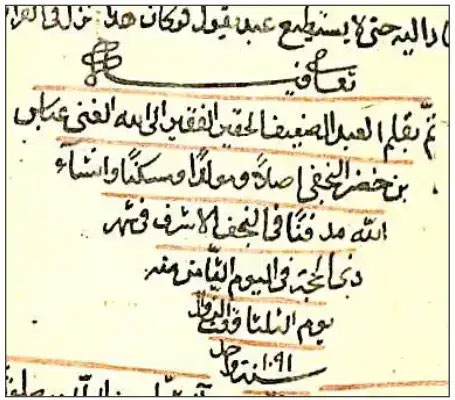 داليه حتى لا يستطيع عبد يقول لو كان هذا نزل في القرا
تعافيـ
تم بقلم العبد الضعيف الحقير الفقير الى الله الغنى عباس
بن خضر النجفى اصلاً ومولداً ومسكناً وانشاء
الله مدفناً في النجف الاشرف في شهر
ذى الحجة في اليوم الثامن منه
يوم الثلثا وقت الزوال
سنة ١٠٩١